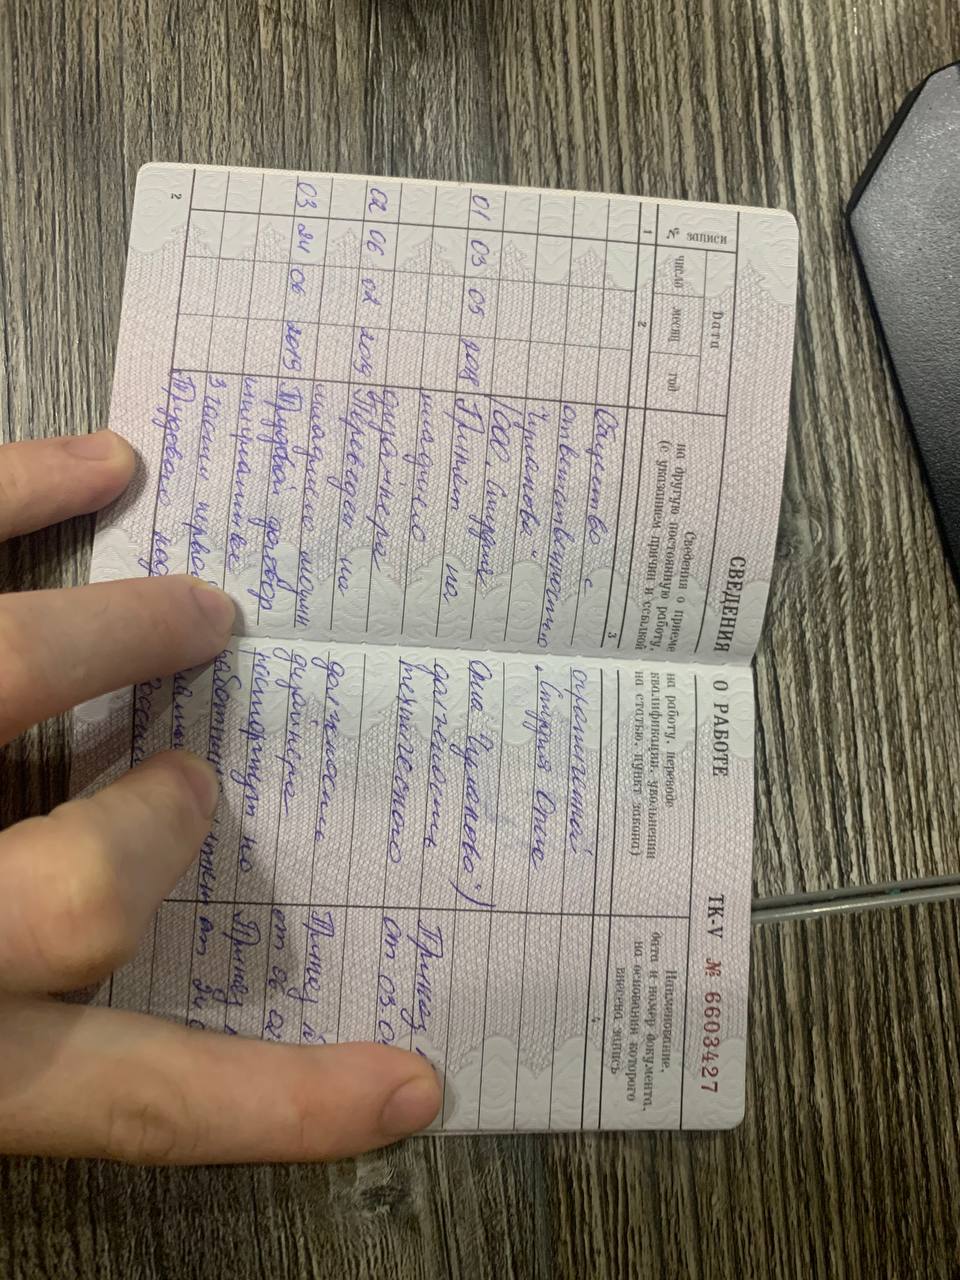 СВЕДЕНИЯ О РАБОТЕ ТК-V № 6603427
№ записи
Дата
число месяц год
Сведения о приеме на работу, переводе
на другую постоянную работу, квалификации, увольнении
(с указанием причин и ссылкой на статью, пункт закона)
Наименование,
дата и номер документа,
на основании которого
внесена запись
1 2 3 4
Общество с ограниченной
ответственностью „Студия Олега
Чулакова“
(ООО „Студия Олега Чулакова“)
01 03 05 2018 Принят на должность Приказ
младшего технического от 03.0
дизайнера
02 06 02 2019 Переведен на должность Приказ
младшего моушн дизайнера от 06.02
03 24 06 2019 Трудовой договор расторгнут по Приказ
инициативе работника, пункт от 24.0
3 части первой
Трудового код
2